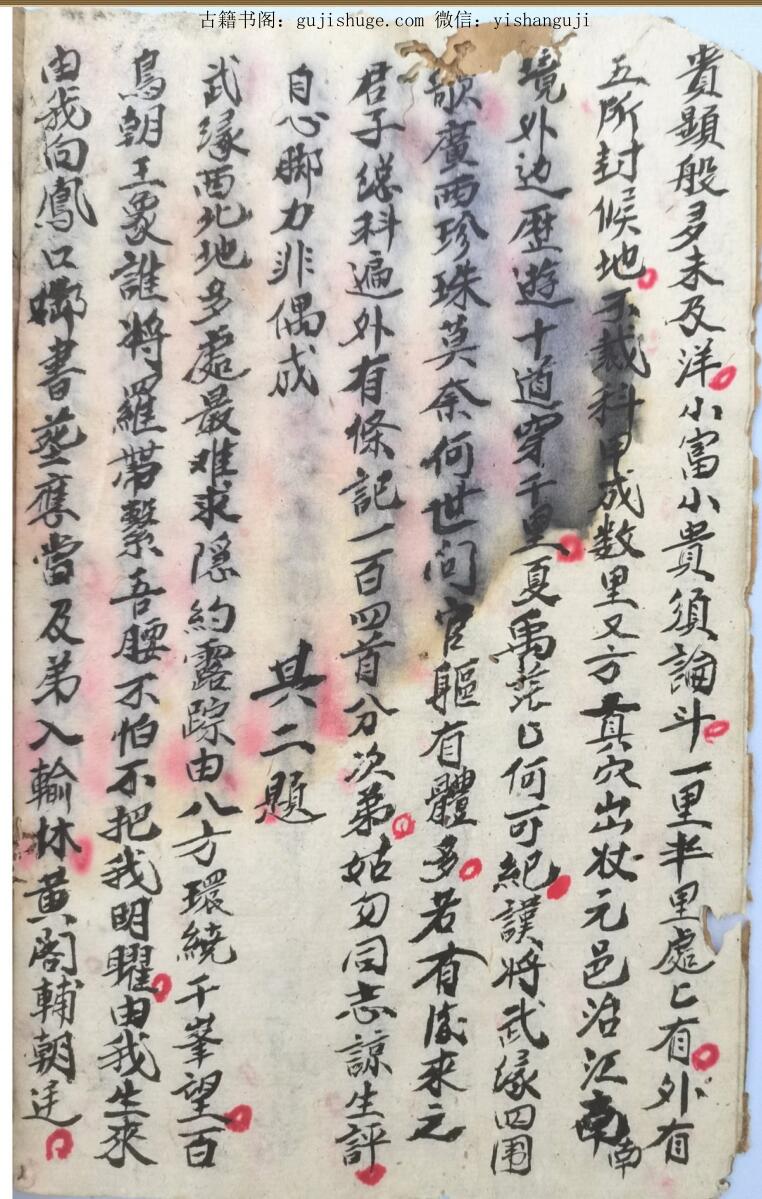 古籍书阁：gujishuge.com 微信：yishanguji
貴顕般多未及洋小富小貴須論斗一里半里處匕有外有
五所封候地不裁科甲成数里又方真穴出状元邑治江南南
境外边歷遊十道穿千里夏禹茫匕何可紀謹将武缘四围
歌廣西珍珠莫奈何世间官軀有體多若有後來之
君子総科遍外有條記一百四首分次第姑勿同志諒生評
自心脚力非偶成
其二題
武缘西北地多處最难求隠約露踪由八方環繞千峯望一百
鳥朝王象誰将羅帶繫吾腰不怕不把我明曜由我生來
由我向鳳口啣書塟應當及弟入輸林黄阁輔朝廷